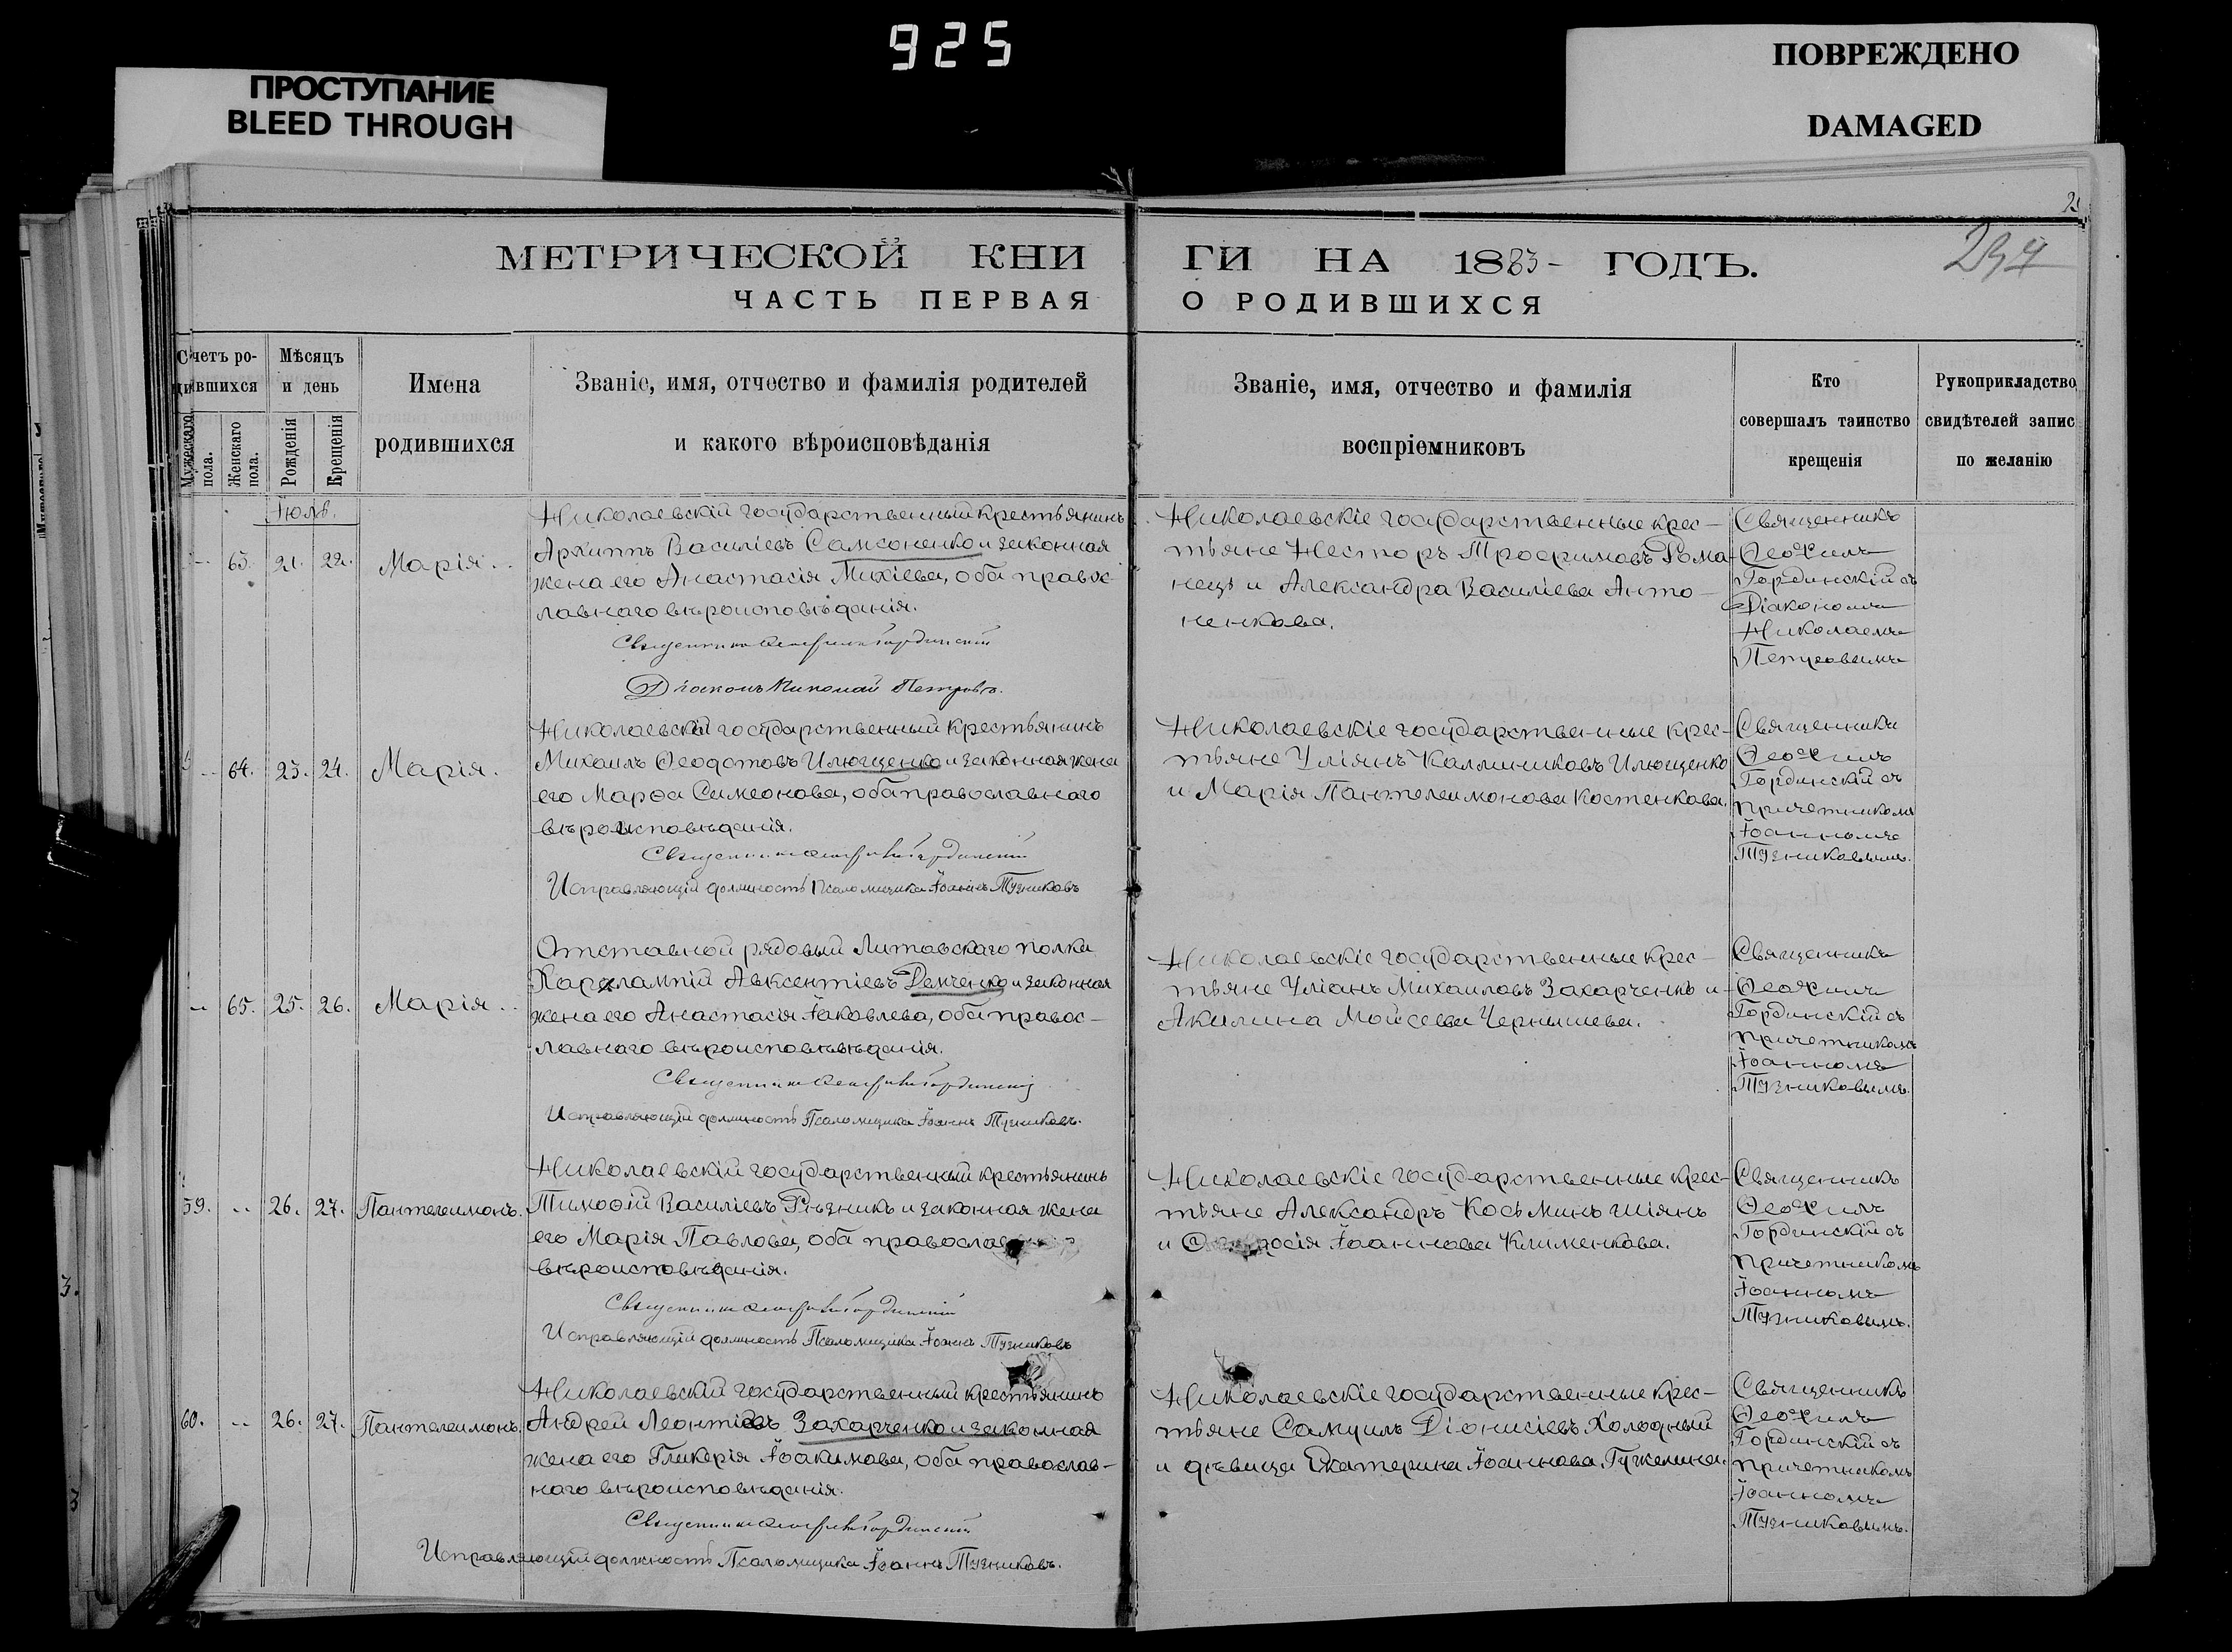 925
ПРОСТУПАНИЕ
BLEED THROUGH
ПОВРЕЖДЕНО
DAMAGED
МЕТРИЧЕСКОЙ КНИ
ГИ НА 1883 - ГОДЪ.
ЧАСТЬ ПЕРВАЯ
О РОДИВШИХСЯ
Счетъ ро-
дившихся
Мужескаго пола.
Женскаго пола.
Мѣсяцъ
и день
Рожденія
Крещенія
Имена
родившихся
Званіе, имя, отчество и фамилія родителей
и какого вѣроисповѣданія
Званіе, имя, отчество и фамилія
воспріемниковъ
Кто
совершалъ таинство
крещенія
Рукоприкладство
свидѣтелей запис
по желанію
Іюль.
63. 21. 22. Марія.
Николаевскій государственный крестьянинъ
Архиппъ Василіевъ Самсоненко и законная
жена его Анастасія Михіева, оба правос-
лавнаго вѣроисповѣданія.
Священникъ Ѳеофилъ Гординскій
Діаконъ Николай Петровъ.
Николаевскіе государственные крес-
тьяне Несторъ Трофимовъ Рома-
нецъ и Александра Василіева Анто-
ненкова.
Священникъ
Ѳеофилъ
Гординскій съ
Діакономъ
Николаемъ
Петровымъ
64. 23. 24. Марія.
Николаевскій государственный крестьянинъ
Михаилъ Ѳеодотовъ Илющенко и законная жена
его Марѳа Симеонова, оба православнаго
вѣроисповѣданія.
Священникъ Ѳеофилъ Гординскій
Исправляющій должность Псаломщика Іоаннъ Тузниковъ
Николаевскіе государственные крес-
тьяне Уліянъ Каллиниковъ Илющенко
и Марія Пантелеимонова Костенкова.
Священникъ
Ѳеофилъ
Гординскій съ
причетникомъ
Іоанномъ
Тузниковымъ.
65. 25. 26. Марія.
Отставной рядовый Литовскаго полка
Харлампій Авксентіевъ Демченко и законная
жена его Анастасія Іаковлева, оба правос-
лавнаго вѣроисповѣвѣданія.
Священникъ Ѳеофилъ Гординскій
Исправляющій должность Псаломщика Іоаннъ Тузниковъ.
Николаевскіе государственные крес-
тьяне Уліанъ Михаиловъ Захарченко и
Акилина Моисеева Чернышева.
Священникъ
Ѳеофилъ
Гординскій съ
причетникомъ
Іоанномъ
Тузниковымъ.
59. 26. 27. Пантелеимонъ.
Николаевскій государственный крестьянинъ
Тимоѳій Василіевъ Рѣзникъ и законная жена
его Марія Павлова, оба православ
вѣроисповѣданія.
Священникъ Ѳеофилъ Гординскій
Исправляющій должность Псаломщика Іоаннъ Тузниковъ
Николаевскіе государственные крес-
тьяне Александръ Косьминъ Шіянъ
и Іоаннова Клименкова.
Священникъ
Ѳеофилъ
Гординскій съ
причетникомъ
Іоанномъ
Тузниковымъ.
60. 26. 27. Пантелеимонъ.
Николаевскій государственный крестьянинъ
Андрей Леонтіевъ Захарченко и законная
жена его Гликерія Іоакимова, оба православ-
наго вѣроисповѣданія.
Священникъ Ѳеофилъ Гординскій
Исправляющій должность Псаломщика Іоаннъ Тузниковъ.
Николаевскіе государственные крес-
тьяне Самуилъ Діонисіевъ Холодный
и дѣвица Екатерина Іоаннова Гужелина.
Священникъ
Ѳеофилъ
Гординскій съ
причетникомъ
Іоанномъ
Тузниковымъ.